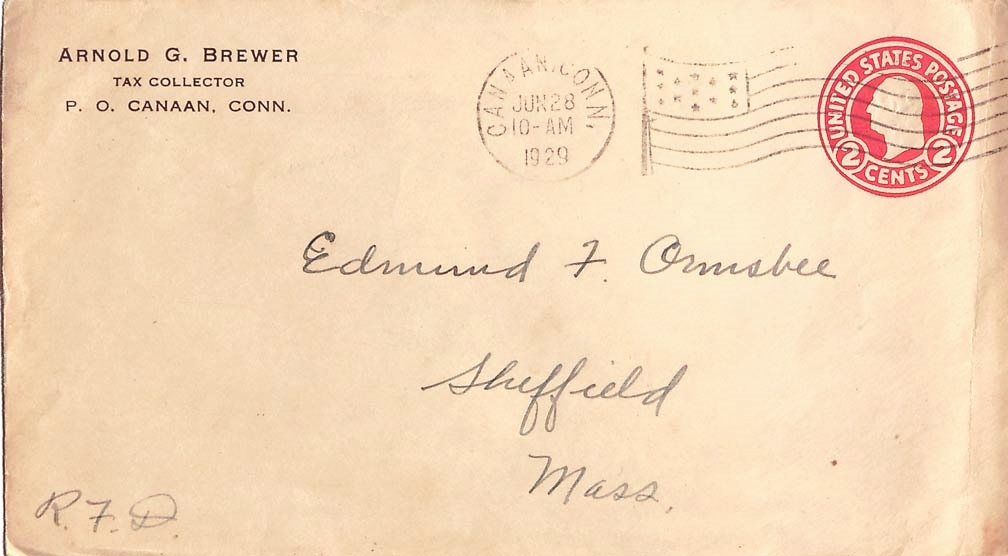 ARNOLD G. BREWER
TAX COLLECTOR
P. O. CANAAN, CONN.
CANAAN, CONN.
JUN 28
10-AM
1929
UNITED STATES POSTAGE
2 CENTS 2
Edmund F. Ormsbee
Sheffield
Mass.
R. F. D.